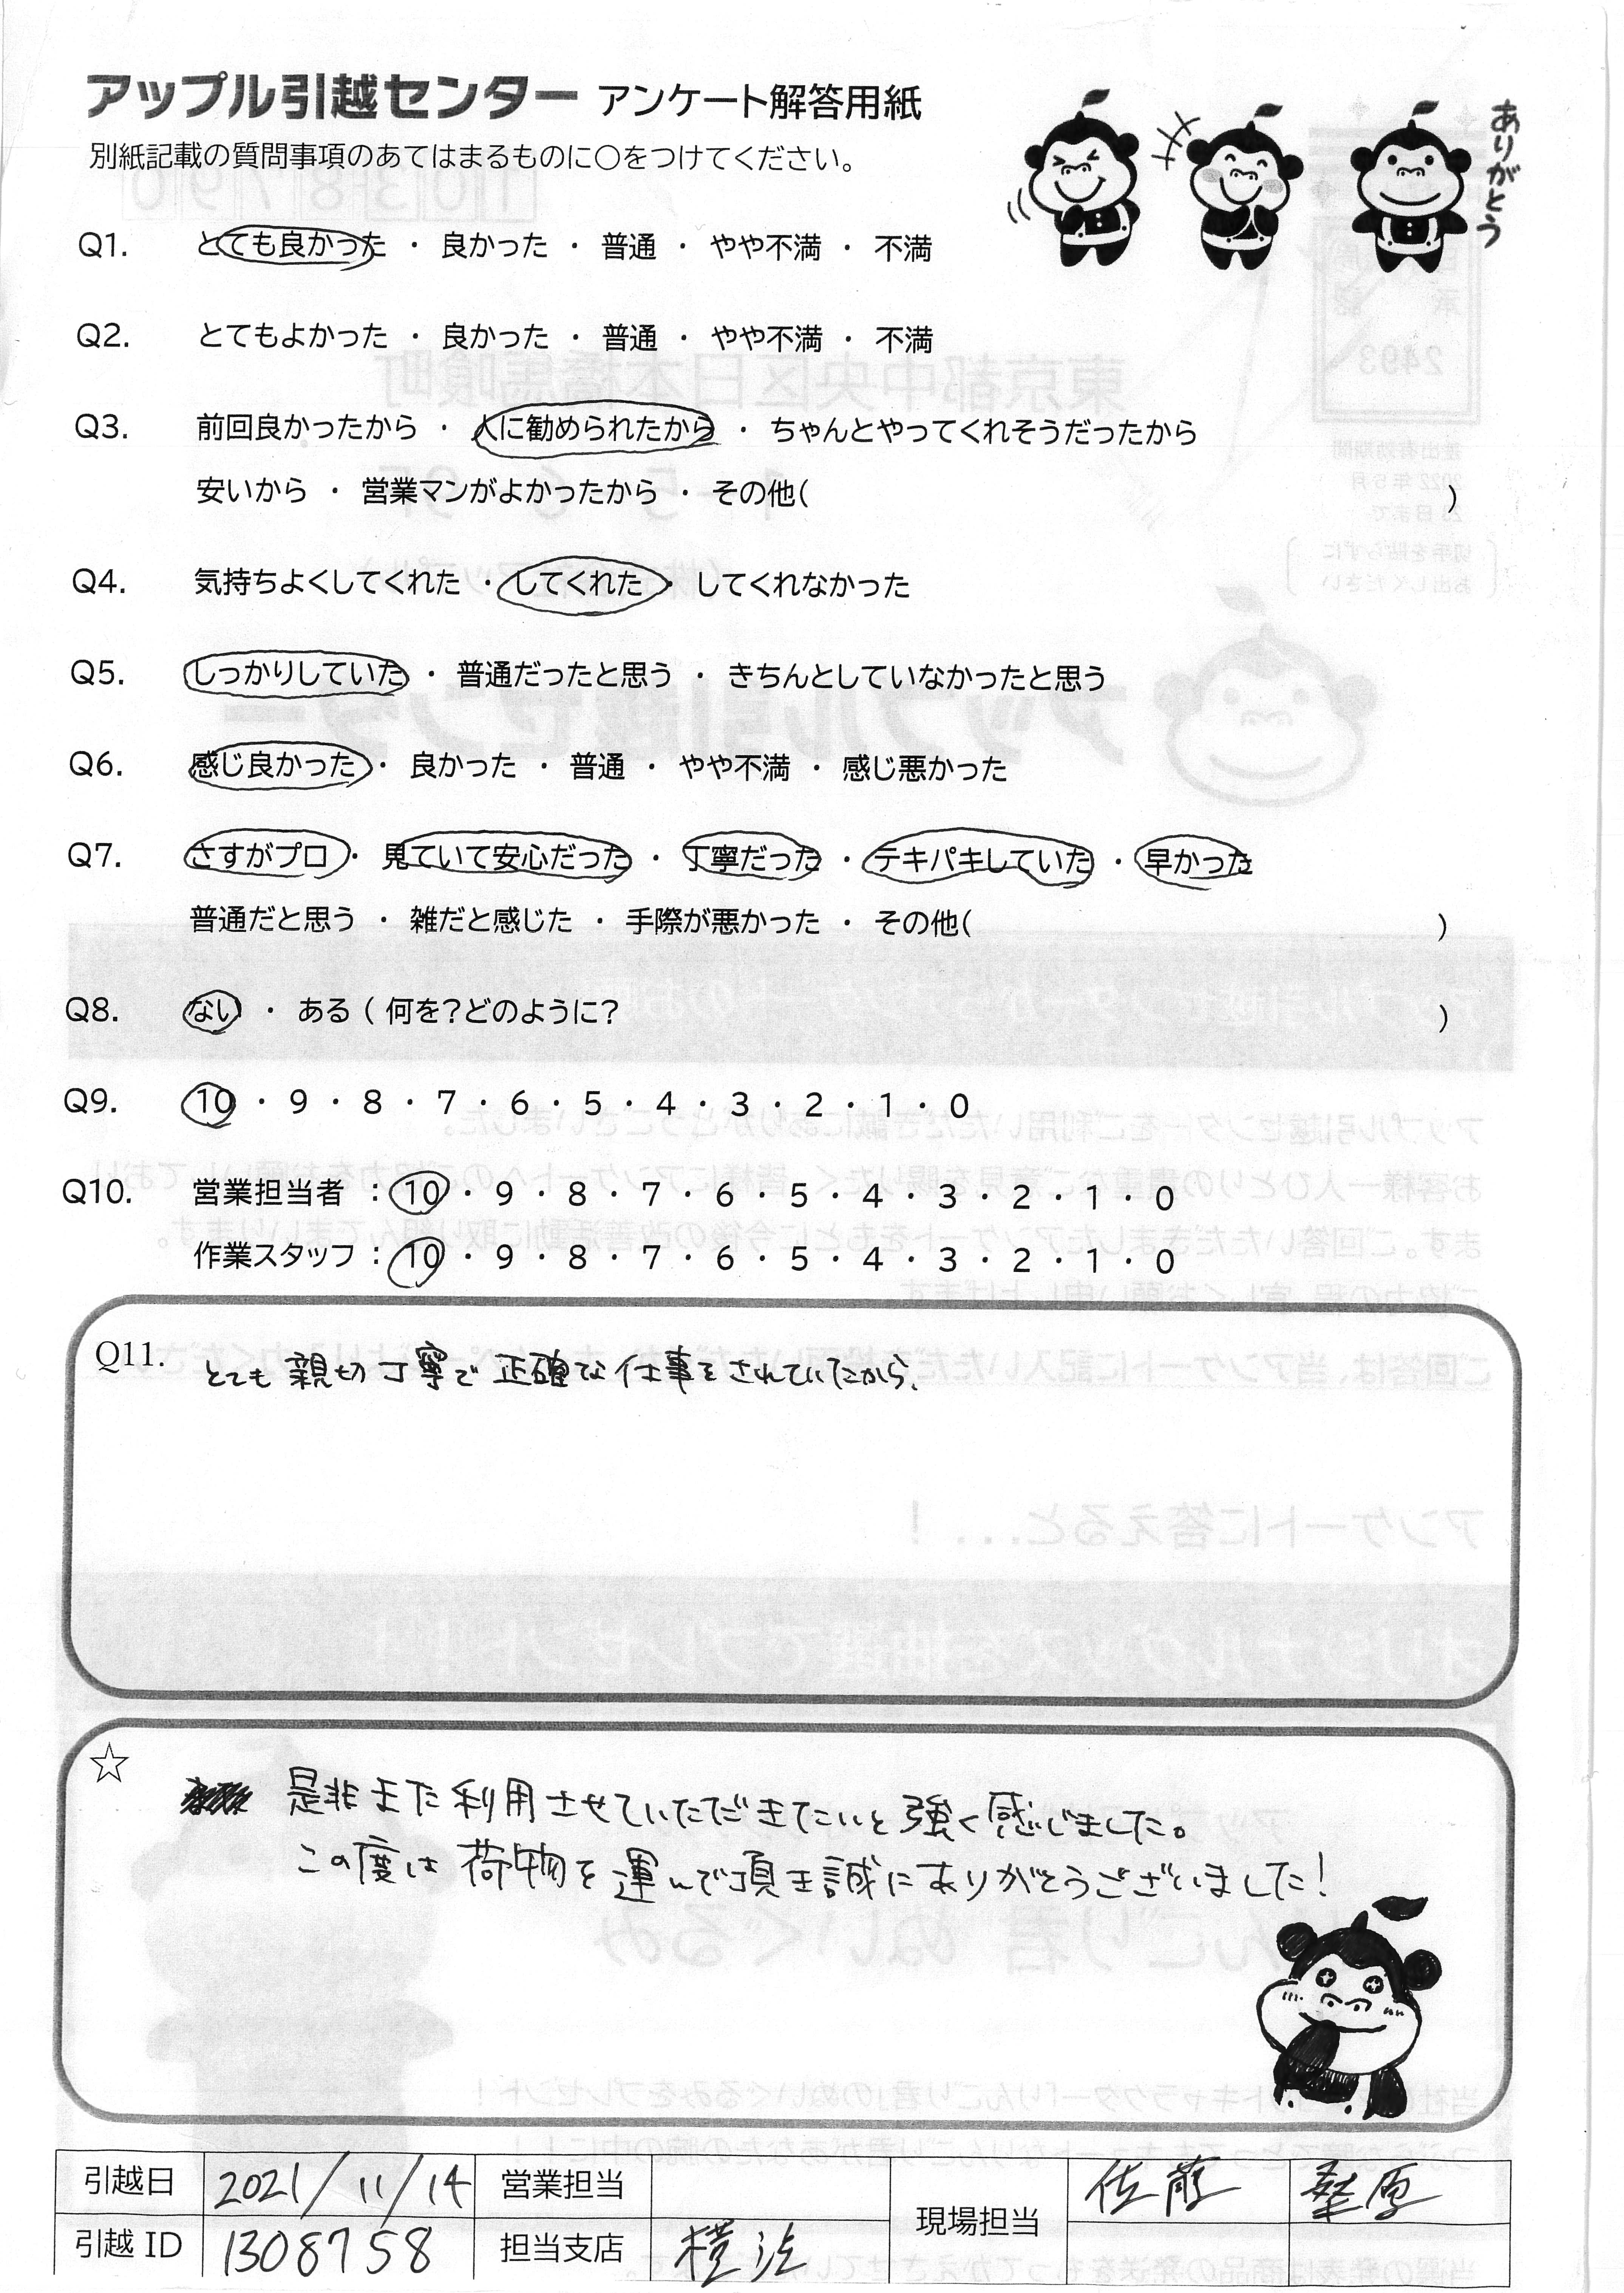 アップル引越センター アンケート解答用紙
ありがとう
別紙記載の質問事項のあてはまるものに○をつけてください。
Q1. とても良かった ・ 良かった ・ 普通 ・ やや不満 ・ 不満
Q2. とてもよかった ・ 良かった ・ 普通 ・ やや不満 ・ 不満
Q3. 前回良かったから ・ 人に勧められたから ・ ちゃんとやってくれそうだったから
安いから ・ 営業マンがよかったから ・ その他( )
Q4. 気持ちよくしてくれた ・ してくれた ・ してくれなかった
Q5. しっかりしていた ・ 普通だったと思う ・ きちんとしていなかったと思う
Q6. 感じ良かった ・ 良かった ・ 普通 ・ やや不満 ・ 感じ悪かった
Q7. さすがプロ ・ 見ていて安心だった ・ 丁寧だった ・ テキパキしていた ・ 早かった
普通だと思う ・ 雑だと感じた ・ 手際が悪かった ・ その他( )
Q8. ない ・ ある ( 何を？どのように？ )
Q9. 10 ・ 9 ・ 8 ・ 7 ・ 6 ・ 5 ・ 4 ・ 3 ・ 2 ・ 1 ・ 0
Q10. 営業担当者 : 10 ・ 9 ・ 8 ・ 7 ・ 6 ・ 5 ・ 4 ・ 3 ・ 2 ・ 1 ・ 0
作業スタッフ : 10 ・ 9 ・ 8 ・ 7 ・ 6 ・ 5 ・ 4 ・ 3 ・ 2 ・ 1 ・ 0
Q11. とても親切丁寧で正確な仕事をされていたから、
☆ 是非また利用させていただきたいと強く感じました。
この度は荷物を運んで頂き誠にありがとうございました！
引越日 2021/11/14 営業担当 現場担当 佐藤 桑原
引越 ID 1308758 担当支店 横浜